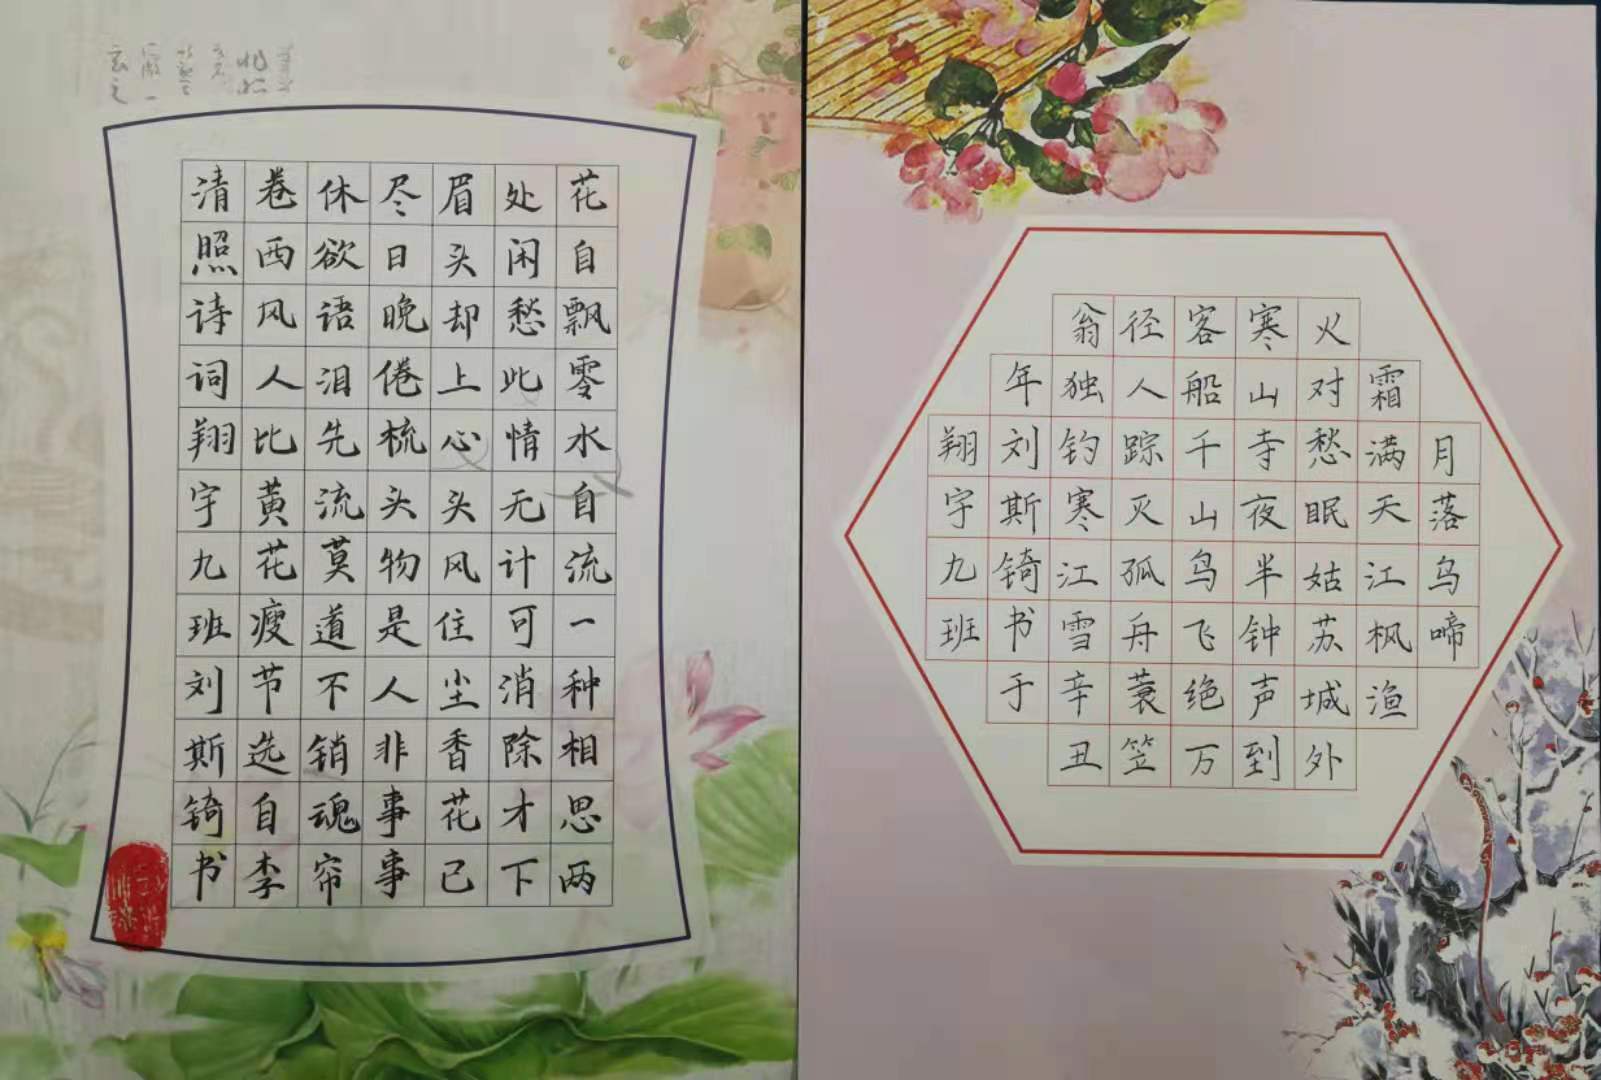 花自飘零水自流一种相思两
处闲愁此情无计可消除才下
眉头却上心头风住尘香花已
尽日晚倦梳头物是人非事事
休欲语泪先流莫道不销魂帘
卷西风人比黄花瘦节选自李
清照诗词翔宇九班刘斯锜书
月落乌啼
霜满天江枫渔
火对愁眠姑苏城外
寒山寺夜半钟声到
客船千山鸟飞绝万
径人踪灭孤舟蓑笠
翁独钓寒江雪辛丑
年刘斯锜书于
翔宇九班